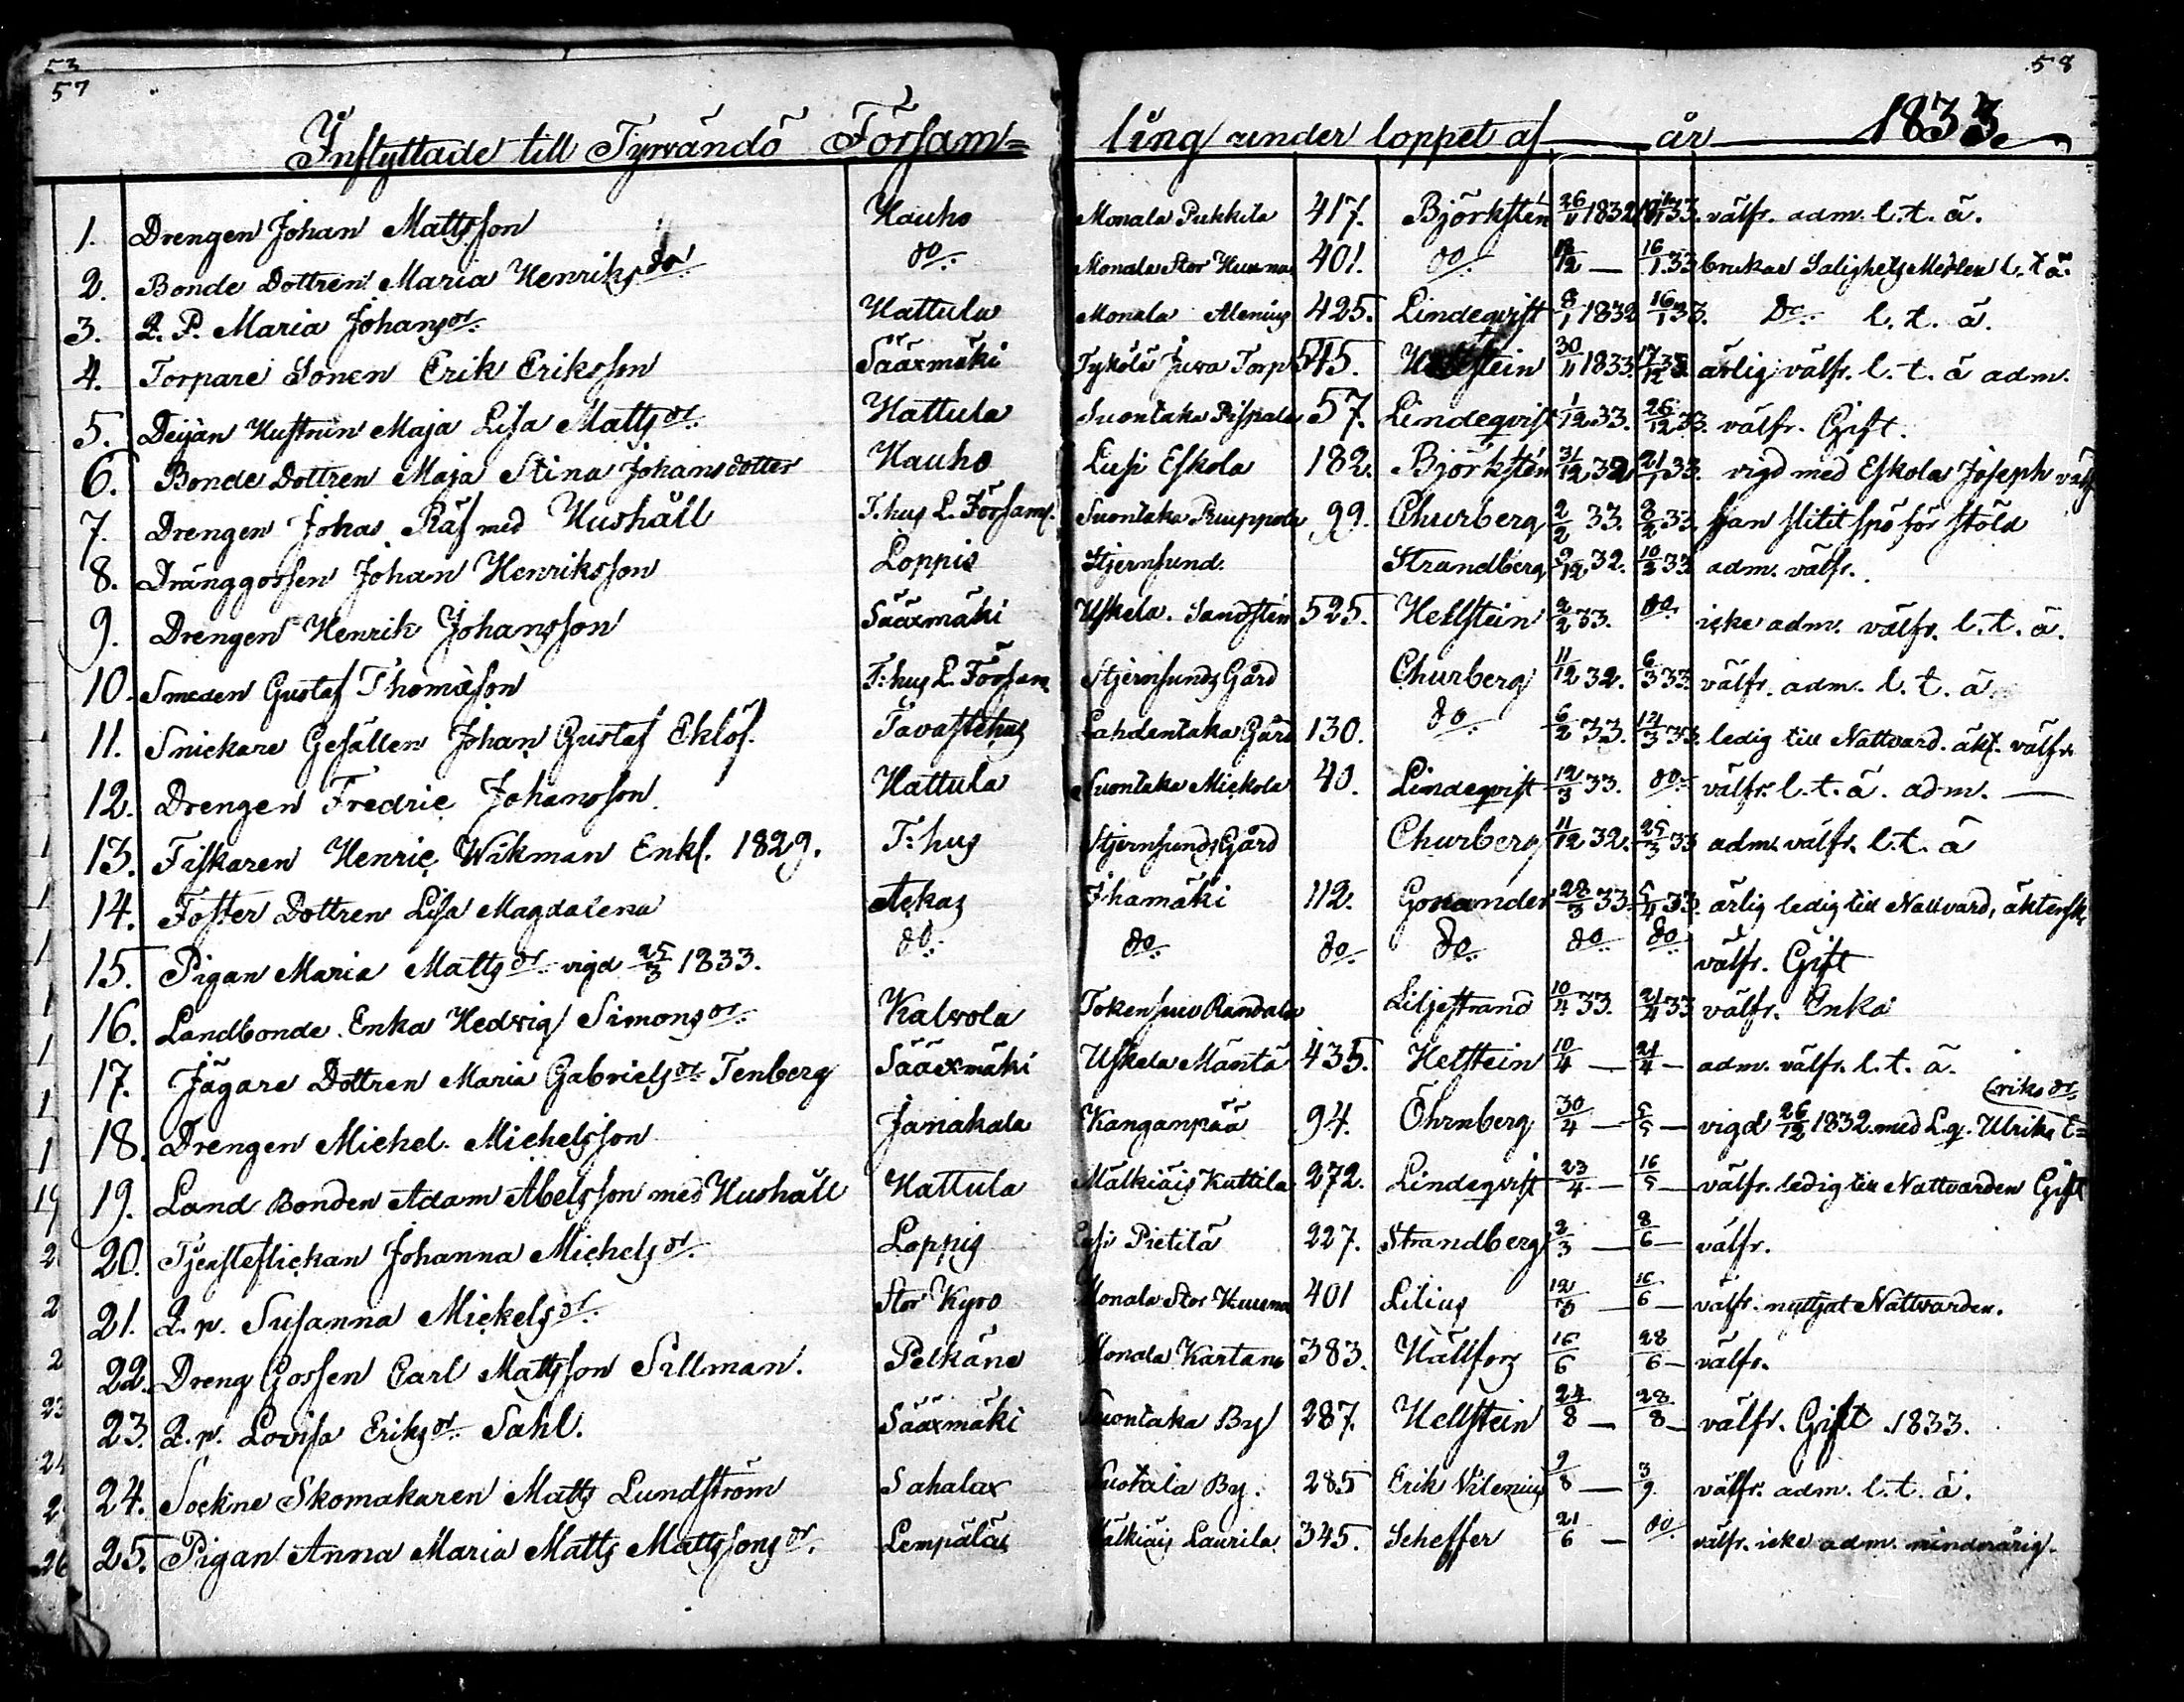 53
57
58
Inflyttade till Tyrvändö Församling under loppet af år 1833.
1. Drengen Johan Mattsson Hauho Monala Pukkila 417. Björkstén 26/11 1832 1/1 33. välfr. adm. l. t. ä.
2. Bonde Dottren Maria Henriksdr do Monala Stor Huuna 401. do 12 — 16/1 33 brukar Salighets Medlen l. t ä.
3. Q. P. Maria Johansdr. Hattula Monala Alenius 425. Lindeqvist 8/1 1832 16/1 33. Do l. t. ä.
4. Torpare Sonen Erik Eriksson Sääxmäki Tykölä Juva Torp 545. Hellstein 30/11 1833. 17/12 33. ärlig välfr. l. t. ä adm.
5. Dejan Hustrun Maja Lisa Mattsdr. Hattula Suontaka Pispala 57. Lindeqvist 1/12 33. 26/12 33. välfr. Gift.
6. Bonde Dottren Maja Stina Johansdotter Hauho Lusi Eskola 182. Björkstén 31/12 32 21/1 33. vigd med Eskola Joseph välfr
7. Drengen Johas Räf med Hushåll T.hus L. Församl. Suontaka Ruuppola 99. Churberg 2/2 33. 8/2 33. han slitit spö för stöld
8. Dränggossen Johan Henriksson Loppis Stjernsund. Strandberg 2/12 32. 10/2 33 adm. välfr.
9. Drengen Henrik Johansson Sääxmäki Uskela. Sandstén 525. Hellstein 2/2 33. do icke adm. välfr. l. t. ä.
10. Smeden Gustaf Thomasson T:hus L. Församl Stjernsunds Gård Churberg 11/12 32. 6/3 33. välfr. adm. l. t. ä.
11. Snickare Gesällen Johan Gustaf Eklöf. Tavastehus Lahdentaka Gård 130. do 6/2 33. 12/3 33. ledig till Nattvard. äkt. välfr.
12. Drengen Fredric Johansson. Hattula Suontaka Mickola 40. Lindeqvist 12/3 33. do välfr. l. t. ä. adm. —
13. Fiskaren Henric Wikman Enkl. 1829. T:hus Stjernsunds Gård Churberg 11/12 32. 25/3 33 adm. välfr. l. t. ä
14. Foster Dottren Lisa Magdalena Ackas Ihamäki 112. Gonander 28/3 33. 5/4 33. ärlig ledig till Nattvard, äktensk
15. Pigan Maria Mattsdr vigd 25/3 1833. do. do. do do. do do välfr. Gift
16. Landbonde Enka Hedvig Simonsdr. Kalvola Tokensuu Randala Liljestrand 10/4 33. 21/4 33 välfr. Enka
17. Jägare Dottren Maria Gabrielsdr Tenberg Sääxmäki Uskela Mäntä 435. Hellstein 10/4 — 21/4 — adm. välfr. l. t. ä.
Eriksdr.
18. Drengen Michel Michelsson Janakala Kanganpää 94. Öhrnberg 30/4 — 5/5 — vigd 26/12 1832. med L.q. Ulrika E=
19. Land Bonden Adam Abelsson med Hushåll Hattula Mälkiäis Kuttila 272. Lindeqvist 23/4 — 16/5 — välfr. ledig till Nattvarden Gift
20. Tjensteflickan Johanna Michelsdr. Loppis Lusi Pietilä 227. Strandberg 2/3 — 8/6 — välfr.
21. Q. p. Susanna Mickelsdr. Stor Kyro Monala Stor Huuna 401 Lilius 12/3 — 16/6 — välfr. nyttjat Nattvarden.
22. Dreng Gossen Carl Mattsson Sillman. Pelkäne Monala Kartano 383. Hällfors 16/6 28/6 — välfr.
23. Q. p. Lovisa Eriksdr Sahl. Sääxmäki Suontaka By 287. Hellstein 24/8 — 28/8 — välfr. Gift 1833.
24. Sockne Skomakaren Matts Lundström Sahalax Suotala By. 285 Erik Vilenius 9/8 — 3/9. välfr. adm. l. t. ä.
25. Pigan Anna Maria Matts Mattssonsdr. Lempäläs Mälkiäis Laurila 345. Scheffer 21/6 — do. välfr. icke adm. minderårig.